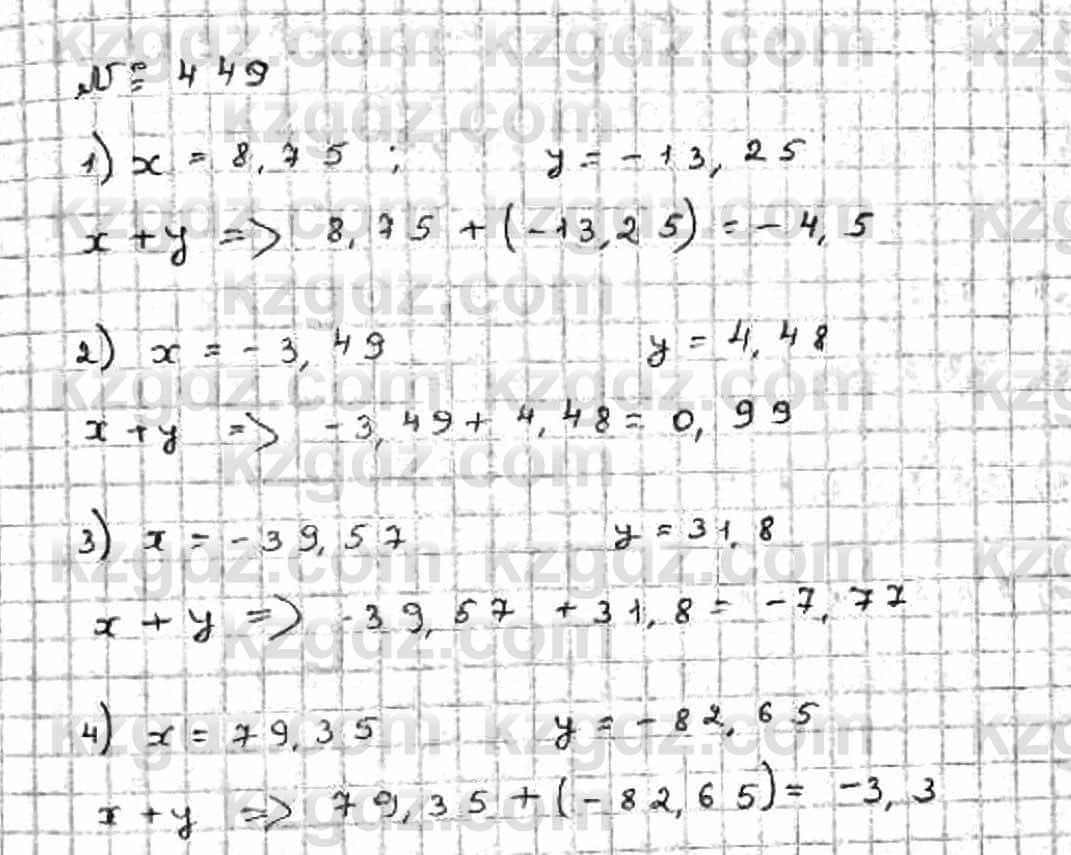 № 449
1) x = 8,75 ; y = -13,25
x + y => 8,75 + (-13,25) = -4,5
2) x = -3,49 y = 4,48
x + y => -3,49 + 4,48 = 0,99
3) x = -39,57 y = 31,8
x + y => -39,57 + 31,8 = -7,77
4) x = 79,35 y = -82,65
x + y => 79,35 + (-82,65) = -3,3